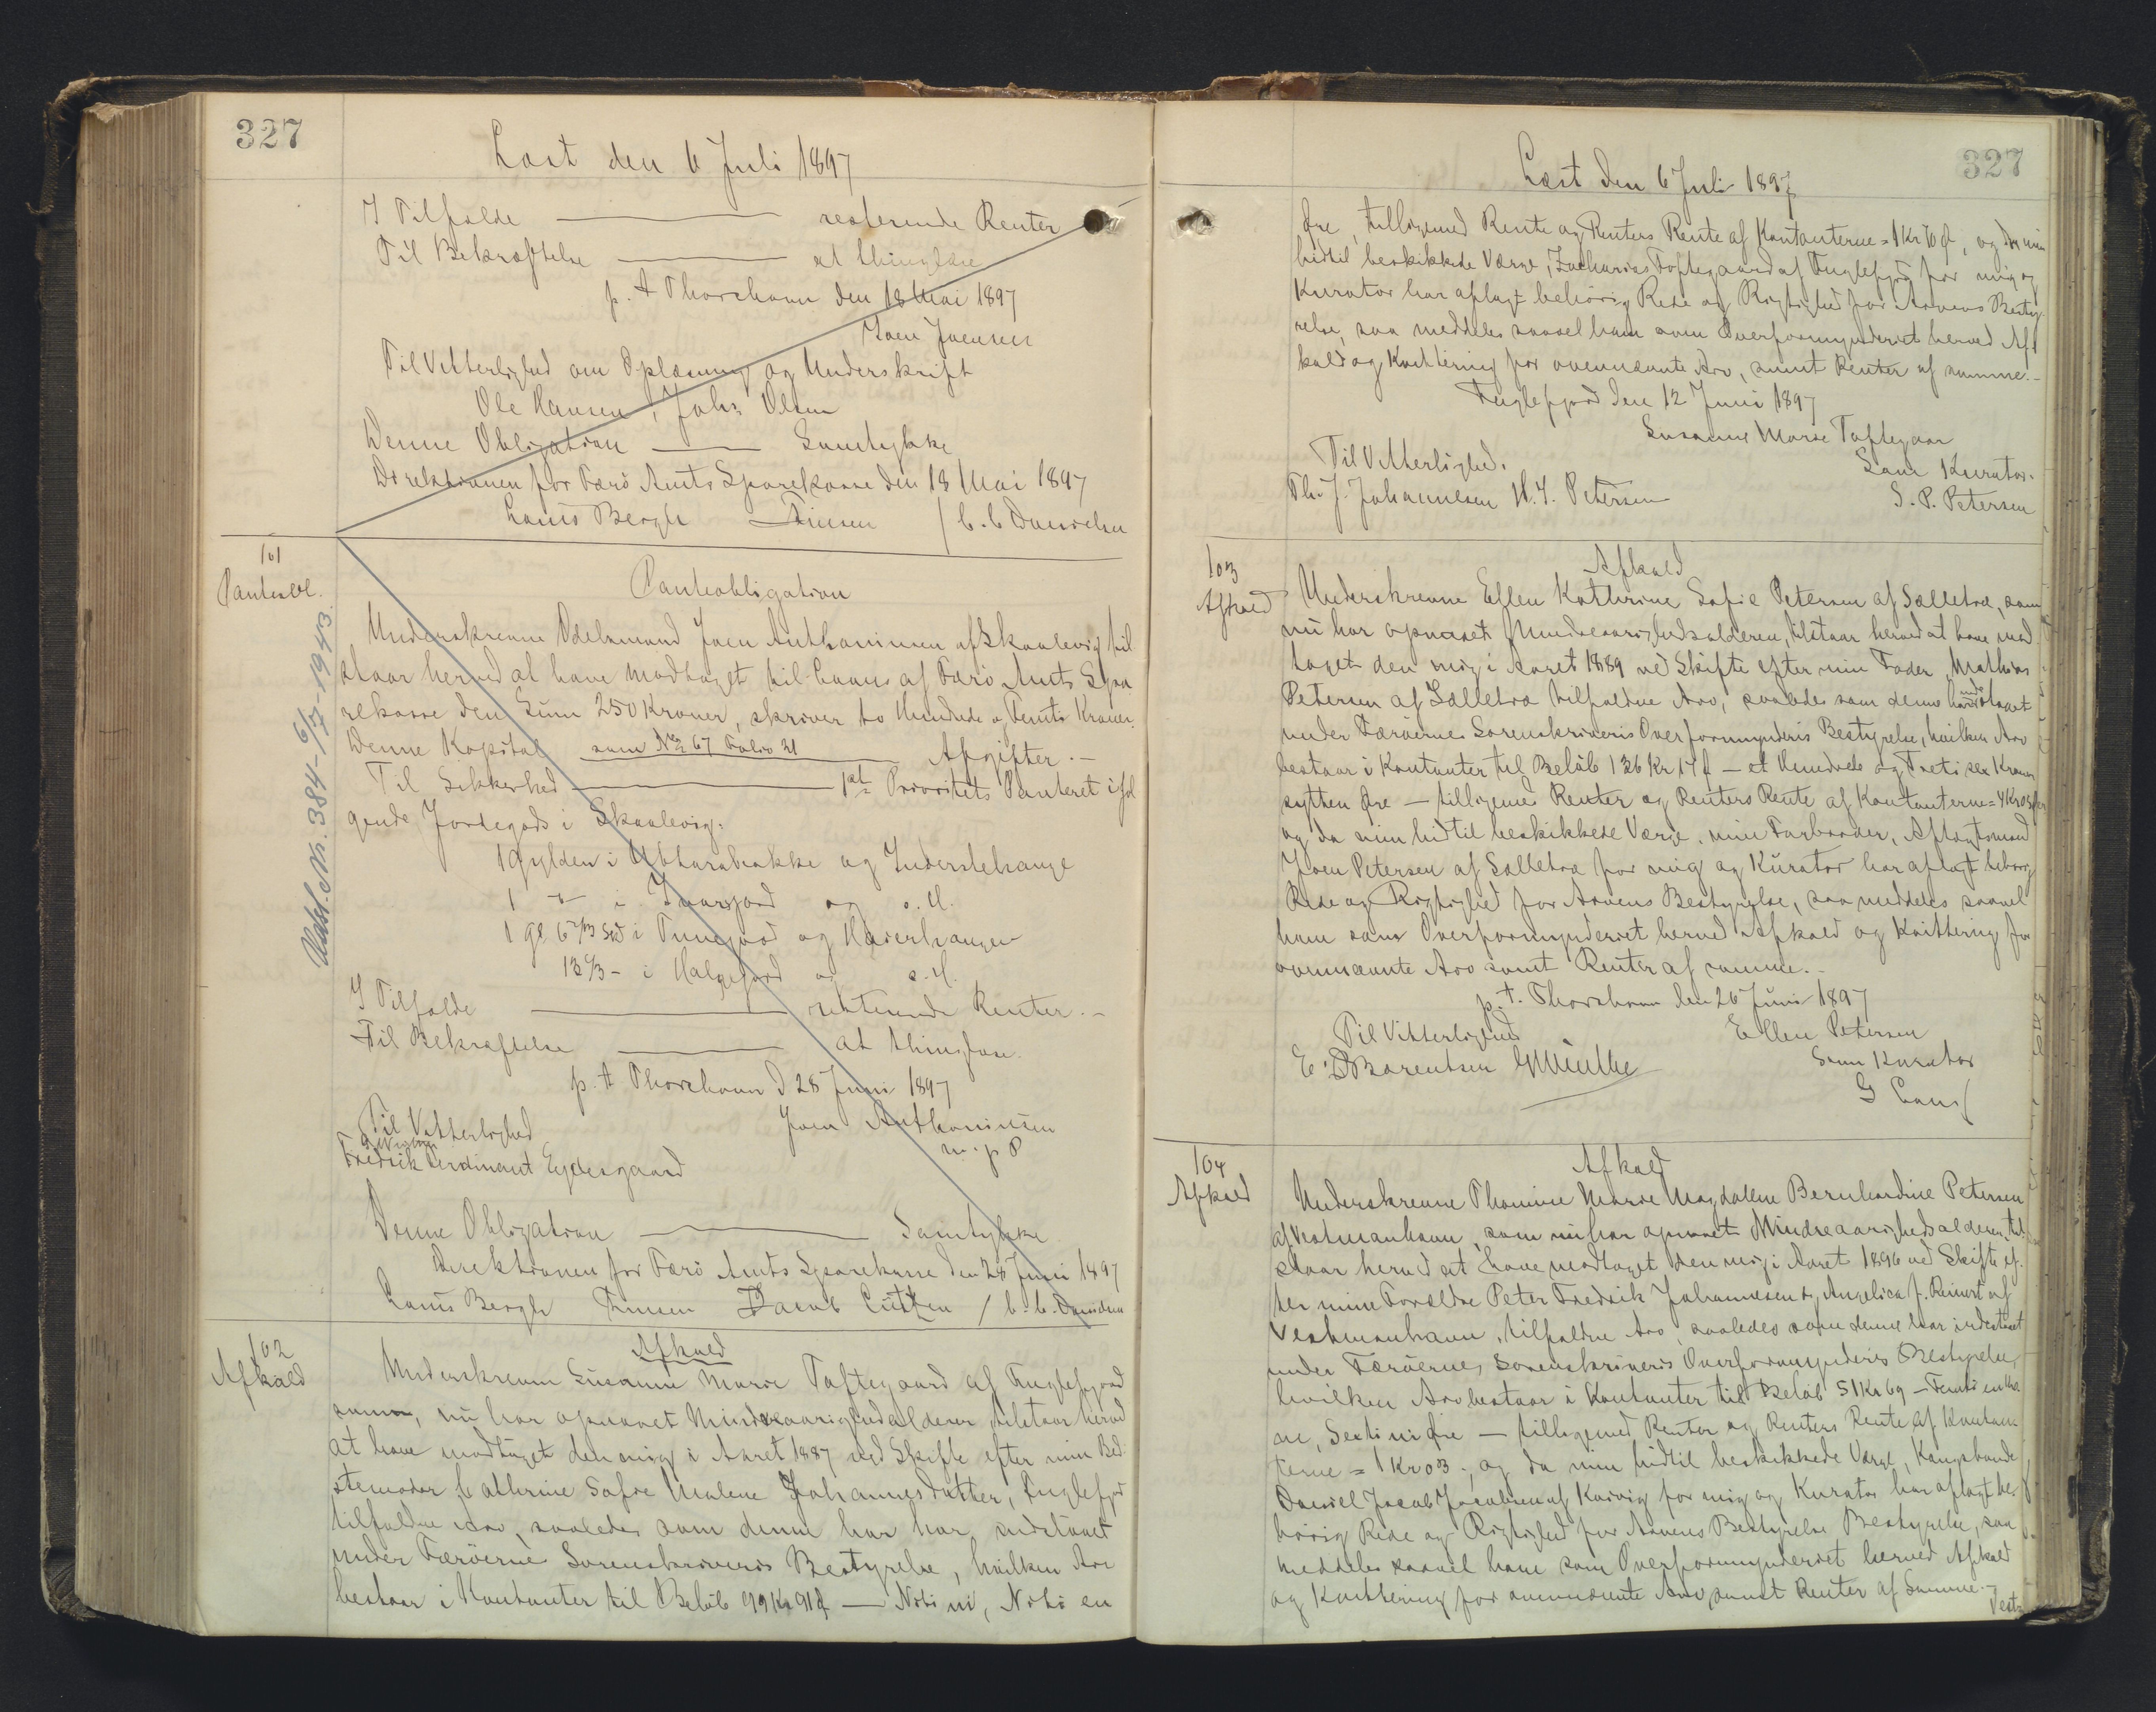 327
Læst den 6 Juli 1897
I Tilfælde ——— resterende Renter
Til Bekræftelse ——— at thinglæse
p. t Thorshavn den 18 Mai 1897
Joen Joensen
Til Vitterlighed om Oplæsning og Underskrift
Ole Hansen, Johs Olsen
Denne Obligation ——— Samtykke
Direktionen for Færö Amts Sparekasse den 18 Mai 1897
Louis Bergh Finsen / C. C. Danielsen
101
Panteobl.
Panteobligation
Underskrevne Odelsmand Joen Anthoniussen af Skaalevig til
staar herved at have modtaget til Laans af Færö Amts Spa
rekasse den Sum 250 Kroner, skriver to Hundrede og Femti Kroner.
Denne Kapital som No 67 Folio 21 Afgifter.-
Til Sikkerhed ——— 1ste Prioritets Panteret iföl
gende Jordegods i Skaalevig:
1 Gylden i Ubharabakke og Inderstehauge
1 - i og s. H.
1 Gl 6 2/3 Skd i Tunegjord og
13 1/3 - i Halgjord og s. H.
I Tilfælde ——— resterende Renter.-
Til Bekræftelse ——— at thinglæse.
p. t Thorshavn d 28 Juni 1897
Til Vitterlighed Joen Anthoniussen
m. p P
Fredrik Ferdinant Eydesgaard
Udsl. Nr. 384 - 6/7 - 1943.
Denne Obligation ——— Samtykke
Direktionen for Færö Amts Sparekasse den 28 Juni 1897
Louis Bergh Finsen Jacob Lützen / C. C. Danielsen
102
Afkald
Afkald
Underskrevne Susanne Marie Toftegaard af Fuglefjord
som, nu har opnaaet Mindreaarighedsalderen, tilstaar herved
at have modtaget den mig i Aaret 1887 ved Skifte efter min Bed-
stemoder, Cathrine Sofie Malene Johannesdatter, Fuglefjord
tilfaldne Arv, saaledes som denne har har indestaaet
under Færöernes Sorenskriveris Bestyrelse, hvilken Arv
bestaar i Kontanter til Belöb 99 Kr 91 Ø — Niti ni, Niti en
327
Læst den 6 Juli 1897
Øre, tilligemed Rente og Renters Rente af Kontanterne = 1 Kr 70 Ø, og da min
hidtil beskikkede Værge, Zacharias Toftegaard af Fuglefjord for mig og
Kurator har aflagt behörig Rede og Rigtighed for Arvens Besty-
relse, saa meddeles saavel ham som Overformynderiet herved Af-
kald og Kvittering for ovennævnte Arv, samt Renter af samme.-
Fuglefjord den 12 Juni 1897
Susanne Marie Toftegaar
Til Vitterlighed. Som Kurator.
Th. J. Johannesen H. J. Petersen S. P. Petersen
103
Afkald
Afkald
Underskrevne Ellen Kathrine Sofie Petersen af Selletræ, som
nu har opnaaet Mindreaarighedsalderen, tilstaar herved at have mod
taget den mig i Aaret 1889 ved Skifte efter min Fader, Mathias
Petersen af Selletræ tilfaldne Arv, saaledes som denne har indestaaet
under Færöernes Sorenskriveris Overformynderis Bestyrelse, hvilken Arv
bestaar i Kontanter til Belöb 136 Kr 17 Ø — et Hundrede og Treti sex Kroner
sytten Øre — tilligemed Renter og Renters Rente af Kontanterne = 4 Kr 03 Øre
og da min hidtil beskikkede Værge, min Farbroder, Aftægtsmand
Joen Petersen af Selletræ for mig og Kurator har aflagt behörig
Rede og Rigtighed for Arvens Bestyrelse, saa meddeles saavel
ham som Overformynderiet herved Afkald og Kvittering for
ovennævnte Arv samt Renter af samme.-
p. t. Thorshavn den 26 Juni 1897
Til Vitterlighed Ellen Petersen
E. Barentsen GMüller Som Kurator
104
Afkald
Afkald
Underskrevne Thomine Marie Magdalene Bernhardine Petersen
af Vestmanhavn, som nu har opnaaet Mindreaarighedsalderen, til-
staar herved at have modtaget den mig i Aaret 1896 ved Skifte ef-
ter mine Forældre Peter Fredrik Johannesen & Angelica f. Reinert af
Vestmanhavn, tilfaldne Arv, saaledes som denne har indestaaet
under Færöernes Sorenskriveris Overformynderis Bestyrelse,
hvilken Arv bestaar i Kontanter til Belöb 51 Kr 69 — Femti en Kro
ne, Sexti ni Øre — tilligemed Renter og Renters Rente af Kontan
terne = 1 Kr 03, og da min hidtil beskikkede Værge, Kongsbonde
Daniel Jacob Jacobsen af Kvivig for mig og Kurator har aflagt be-
hörig Rede og Rigtighed for Arvens Bestyrelse Bestyrelse, saa
meddeles saavel ham som Overformynderiet herved Afkald
og Kvittering for ovennævnte Arv, samt Renter af Samme.-
Vest-